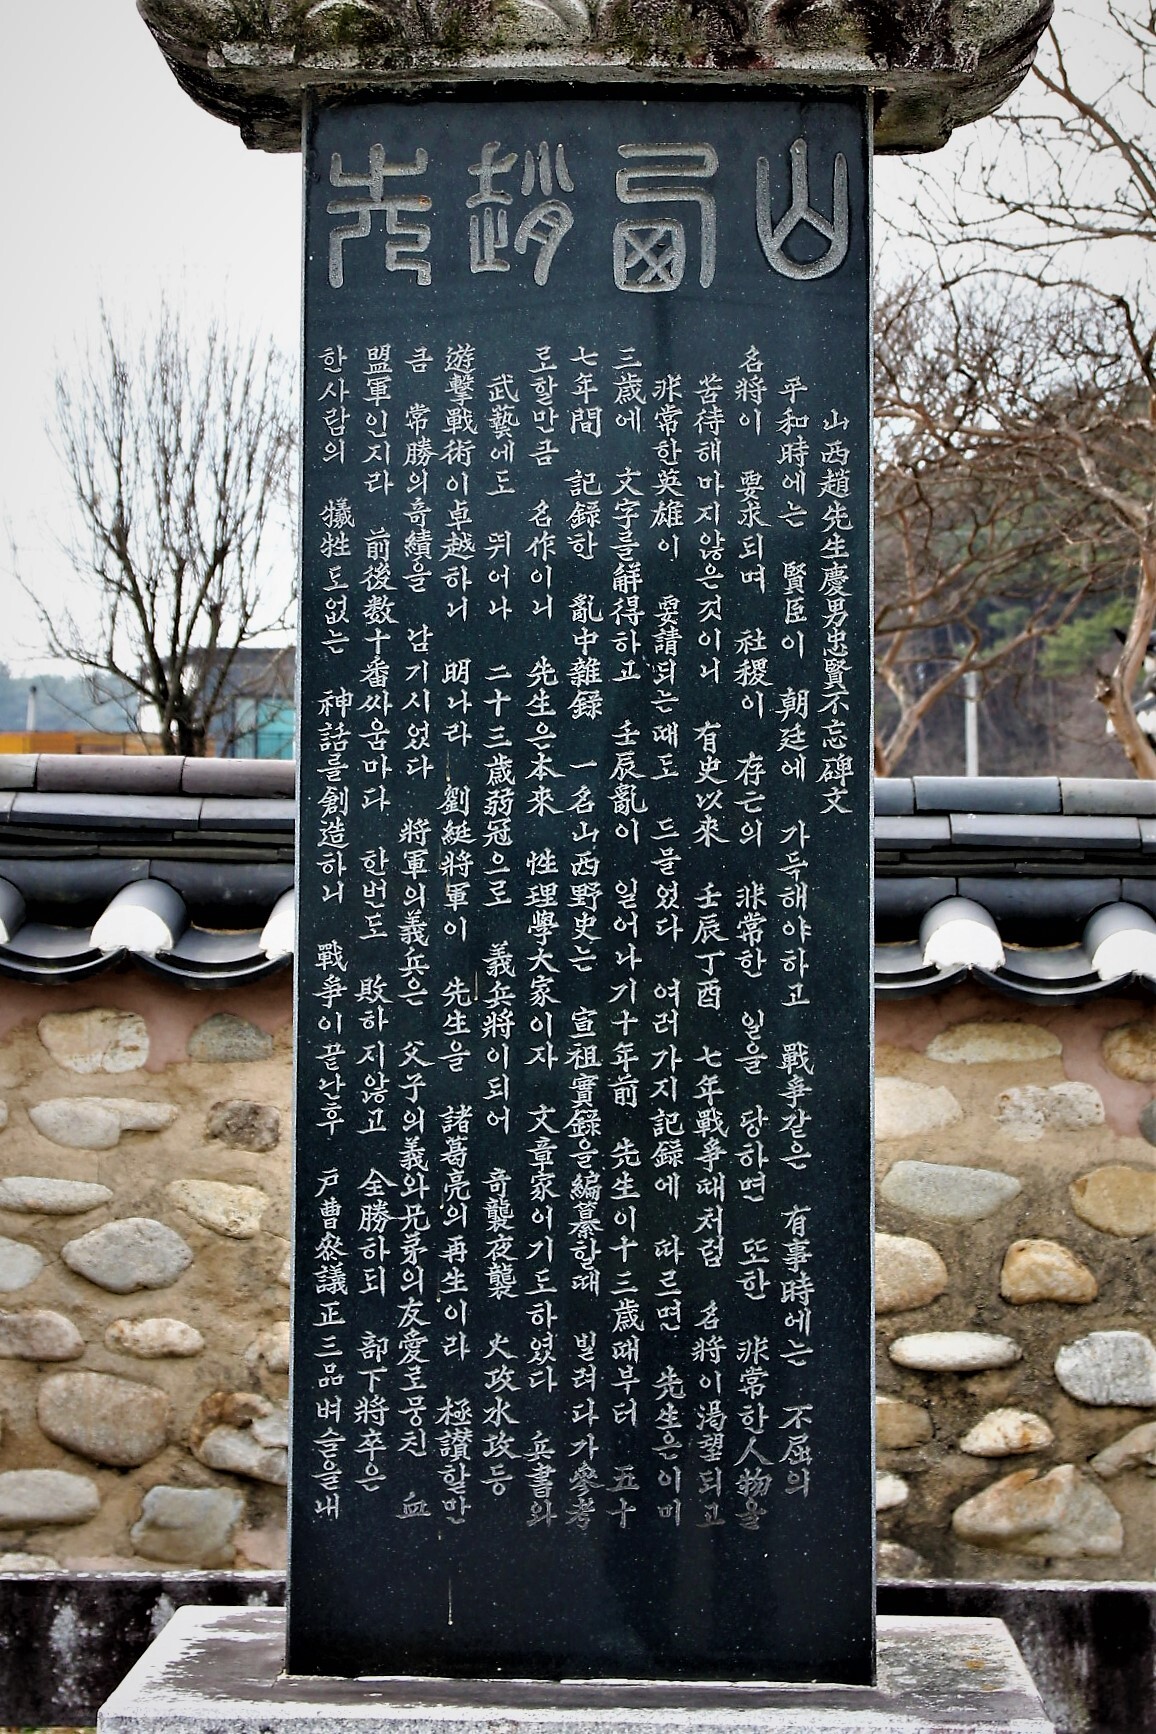 山西趙先
山西趙先生慶男忠賢不忘碑文
平和時에는 賢臣이 朝廷에 가득해야하고 戰爭같은 有事時에는 不屈의
名將이 要求되며 社稷이 存亡의 非常한 일을 당하면 또한 非常한人物을
苦待해마지않은것이니 有史以來 壬辰丁酉 七年戰爭때처럼 名將이渴望되고
非常한英雄이 要請되는때도 드물었다 여러가지記録에 따르면 先生은이미
三歳에 文字를解得하고 壬辰亂이 일어나기十年前 先生이十三歳때부터 五十
七年間 記録한 亂中雜録 一名山西野史는 宣祖實録을編纂할때 빌려다가參考
로할만큼 名作이니 先生은本來 性理學大家이자 文章家이기도하였다 兵書와
武藝에도 뛰어나 二十三歳弱冠으로 義兵將이되어 奇襲夜襲 火攻水攻등
遊擊戰術이卓越하니 明나라 劉綎將軍이 先生을 諸葛亮의再生이라 極讃할만
큼 常勝의奇績을 남기시었다 將軍의義兵은 父子의義와兄弟의友愛로뭉친 血
盟軍인지라 前後数十番싸움마다 한번도 敗하지않고 全勝하되 部下將卒은
한사람의 犧牲도없는 神話를創造하니 戰爭이끝난후 戶曹參議正三品벼슬을내